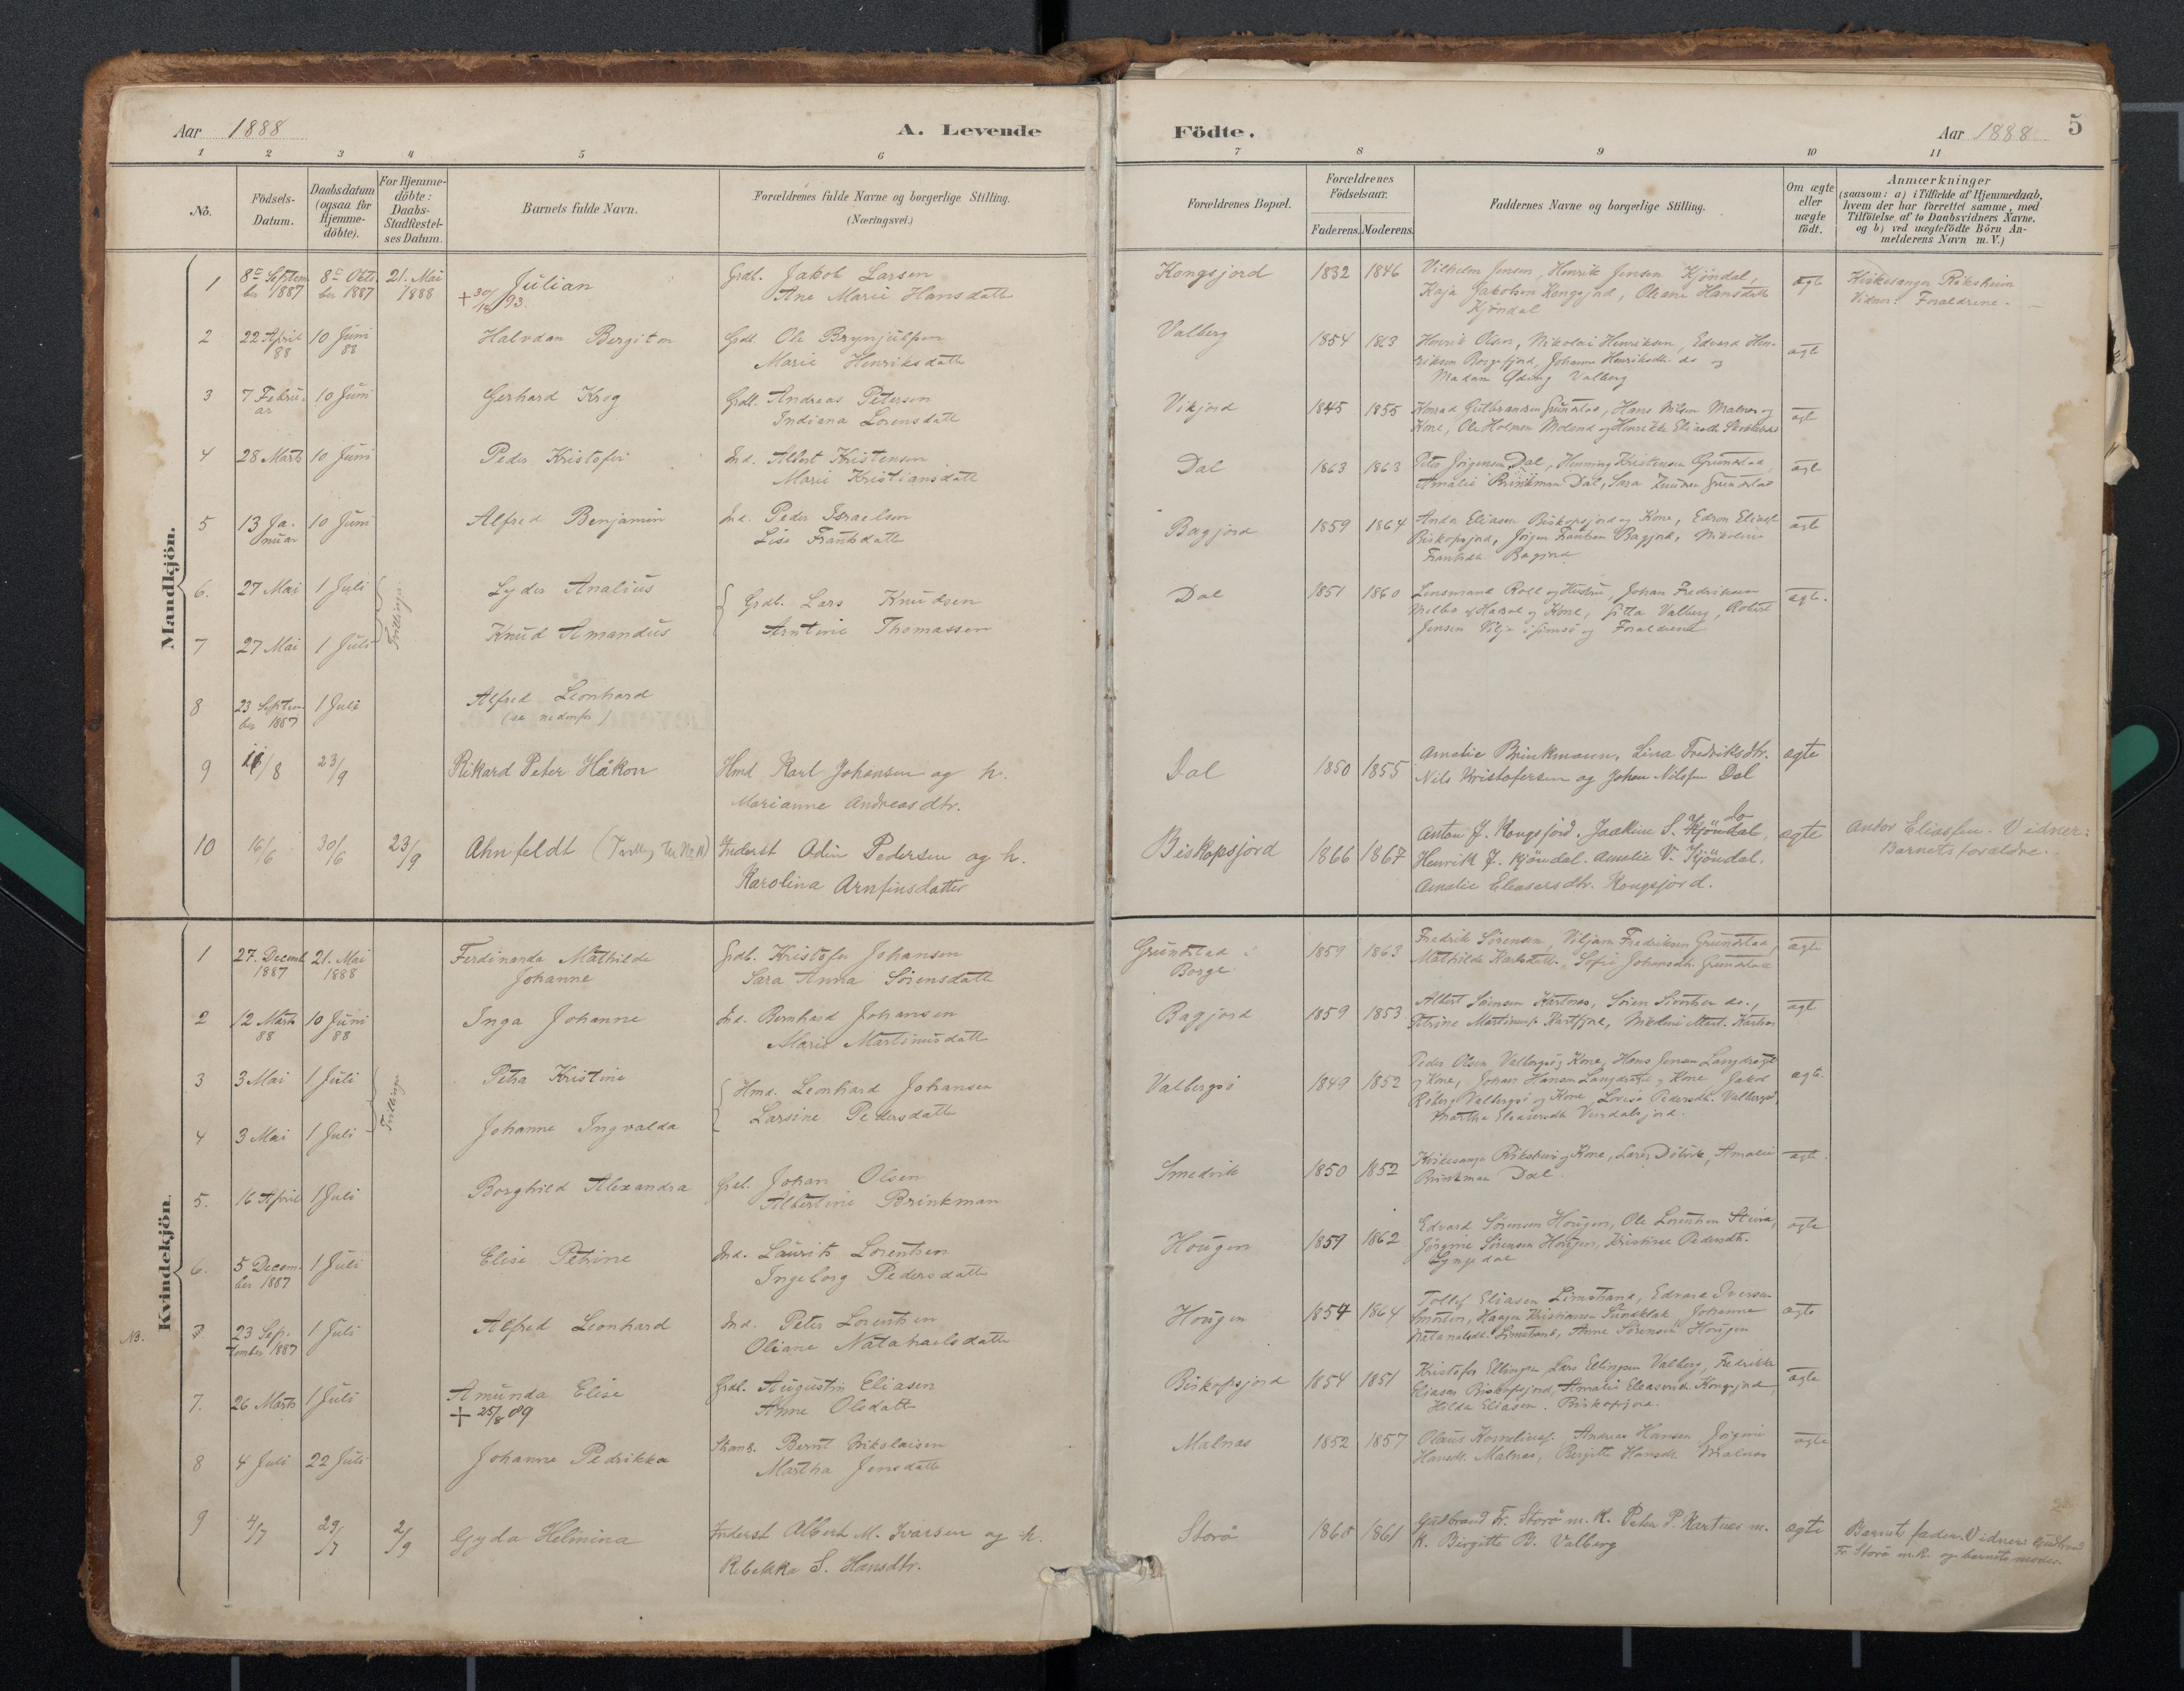 Aar 1888
A. Levende
Födte.
Aar 1888
5
1 2 3 4 5 6 7 8 9 10 11
No.
Födsels-
Datum.
Daabsdatum
(ogsaa for
Hjemme-
döbte).
For Hjemme-
döbte:
Daabs-
Stadfæstel-
ses Datum.
Barnets fulde Navn.
Forældrenes fulde Navne og borgerlige Stilling.
(Næringsvei.)
Forældrenes Bopæl.
Forældrenes
Födselsaar.
Faderens. Moderens.
Faddernes Navne og borgerlige Stilling.
Om ægte
eller
uægte
födt.
Anmærkninger
(saasom: a) i Tilfælde af Hjemmedaab,
hvem der har forrettet samme, med
Tilföielse af to Daabsvidners Navne.
og b) ved uægtefödte Börn An-
melderens Navn m. V.)
Mandkjön.
1 8de Septem 8de Okto 21. Mai Julian Grdb. Jakob Larsen Kongsjord 1832 1846 Vilhelm Jensen, Henrik Jensen Kjöndal, ægte Kirkesanger Röksheim
ber 1887 ber 1887 1888 + 93. Ane Marie Hansdatter Kaja Jakobsen Kongsjord, Oleane Hansdatter Vidner: Forældrene.
Kjöndal
2 22 April 10 Juni Halvdan Bergiton Grdb. Ole Brynjulfsen Valberg 1854 1863 Henrik Olsen, Nikolai Henriksen, Edvard Hen- ægte
88 88 Marie Henriksdatter riksen Borgefjord, Johanna Henriksdtr. do og
Madam Valberg
3 7 Febru- 10 Juni Gerhard Krog Grdb. Andreas Petersen Vikjord 1845 1855 Konrad Gulbrandsen Grundstad, Hans Nilsen Malnes og ægte
ar Indiana Lorensdatter Kone, Ole Holmen Moland og Henrikke
4 28 Marts 10 Juni Peder Kristofer Ind. Albert Kristensen Dal 1863 1863 Peter Jörgensen Dal, Henning Kristensen Grundstad, ægte
Marie Kristiansdatter Amalie Brinkman Dal, Sara Grundstad
5 13 Ja- 10 Juni Alfred Benjamin Ind. Peder Israelsen Bagjord 1859 1864 Andor Eliasen Biskopsjord og Kone, Edvon Eliasen ægte
nuar Lise Frantsdatter Biskopsjord, Jörgen Frantsen Bagjord, Nikoline
Frantsdtr. Bagjord
6. 27 Mai 1 Juli Tvillinger Lyder Analius Grdb. Lars Knudsen Dal 1851 1860 Lensmand Roll og Hustru, Johan Fredriksen ægte.
Melbo af Hadsel og Kone, Gitta Valberg, Robert
7 27 Mai 1 Juli Knud Amandus Arntine Thomassen Jensen Vilje i Gimsö og Forældrene
8 23 Septem- 1 Juli Alfred Leonhard
ber 1887 (se nedenfor)
9 11/8 23/9 Rikard Peter Håkon Hmd Karl Johansen og h. Dal 1850 1855 Amalie Brinkmann, Lina Fredriksdtr. ægte
Marianne Andreasdtr. Nils Kristofersen og Johan Nilssen Dal
10 16/6 30/6 23/9 Ahnfeldt Inderst Odin Pedersen og h. Biskopsjord 1866 1867 Anton J. Kongsfjord. Joakim S. do ægte Andor Eliassen. Vidner:
Karolina Arnfinsdatter Henrik J. Kjöndal. Amalie V. Kjöndal. Barnets forældre.
Amalie Eleasersdtr. Kongsjord.
Kvindekjön.
1 27. Decemb 21. Mai Ferdinanda Mathilde Grdb. Kristofer Johansen Grundstad i 1859 1863 Fredrik Sörensen, Viljam Fredriksen Grundstad, ægte
1887 1888 Johanne Sara Anna Sörensdatter Borge Mathilde Karlsdatter, Sofie Johansdtr. Grundstad
2 12 Marts 10 Juni Inga Johanne Ind. Bernhard Johansen Bagjord 1859 1853 Albert Sörensen Kartnes, Sören Sivertsen do., ægte
88 88 Marie Martinusdatter Petrine Martinus. Nikoline Mart. Kartnes
3 3 Mai 1 Juli Tvillinger Petra Kristine Hmd. Leonhard Johansen Valbergsö 1849 1852 Peder Olsen Valbergsö og Kone, Hans Jensen ægte.
og Kone, Johan Hansen og Kone, Jakob
4 3 Mai 1 Juli Johanne Ingvalda Larsine Pedersdatter Roberg Valbergsö og Kone, Lovise Pedersdtr. Valbergsö,
Martha Eleasersdtr.
5. 16 April 1 Juli Borghild Alexandra Grdb. Johan Olsen Smedvik 1850 1852 Kirkesanger Röksheim og Kone, Lars Dölvik, Amalie ægte.
Albertine Brinkman Brinkman Dal.
6. 5 Decem- 1 Juli Elise Petrine Ind. Laurits Lorentsen Hougen 1859 1862 Edvard Sörensen Hougen, Ole Lorentsen Steira, ægte
ber 1887 Ingeborg Pedersdatter Jörgine Sörensen Hougen, Kristine Pedersdtr.
Lyngedal
NB. 7 23 Sep- 1 Juli Alfred Leonhard Ind. Peter Lorentsen Hougen 1854 1864 Tollef Eliasen Limstrand, Edvard Iversen ægte
tember 1887 Oliane Natanaelsdatter Smorten, Haagen Kristiansen Sundklak, Johanna
Natanaelsdtr. Limstrand, Anne Sörensen Hougen
7. 26 Marts 1 Juli Amunda Elise Grdb. Augustin Eliasen Biskopsjord 1854 1851 Kristofer Ellingsen, Lars Ellingsen Valberg, Fredrikke ægte
+ 25/8 09 Anne Olsdatter Eliasen Biskopsjord, Amalie Eleasersdtr. Kongsjord,
Hilda Eliasen. Biskopsjord.
8 4 Juli 22 Juli Johanne Pedrikka Strands. Bernt Nikolaisen Malnes 1852 1857 Olaus Korneliusen, Andreas Hansen Jörgine ægte
Martha Jensdatter Hansdtr. Malnes, Bergitte Hansdtr. Malnes
9 4/7 29/7 2/9 Gyda Helmina Inderst Albert M. Ivarsen og h. Storö 1865 1861 Gulbrand Fr. Storö m. K. Peter P. Kartnes m. ægte Barnets fader. Vidner: Gulbrand
Rebekka S. Hansdtr. K. Birgitte B. Valberg Fr. Storö m.k. og barnets moder.